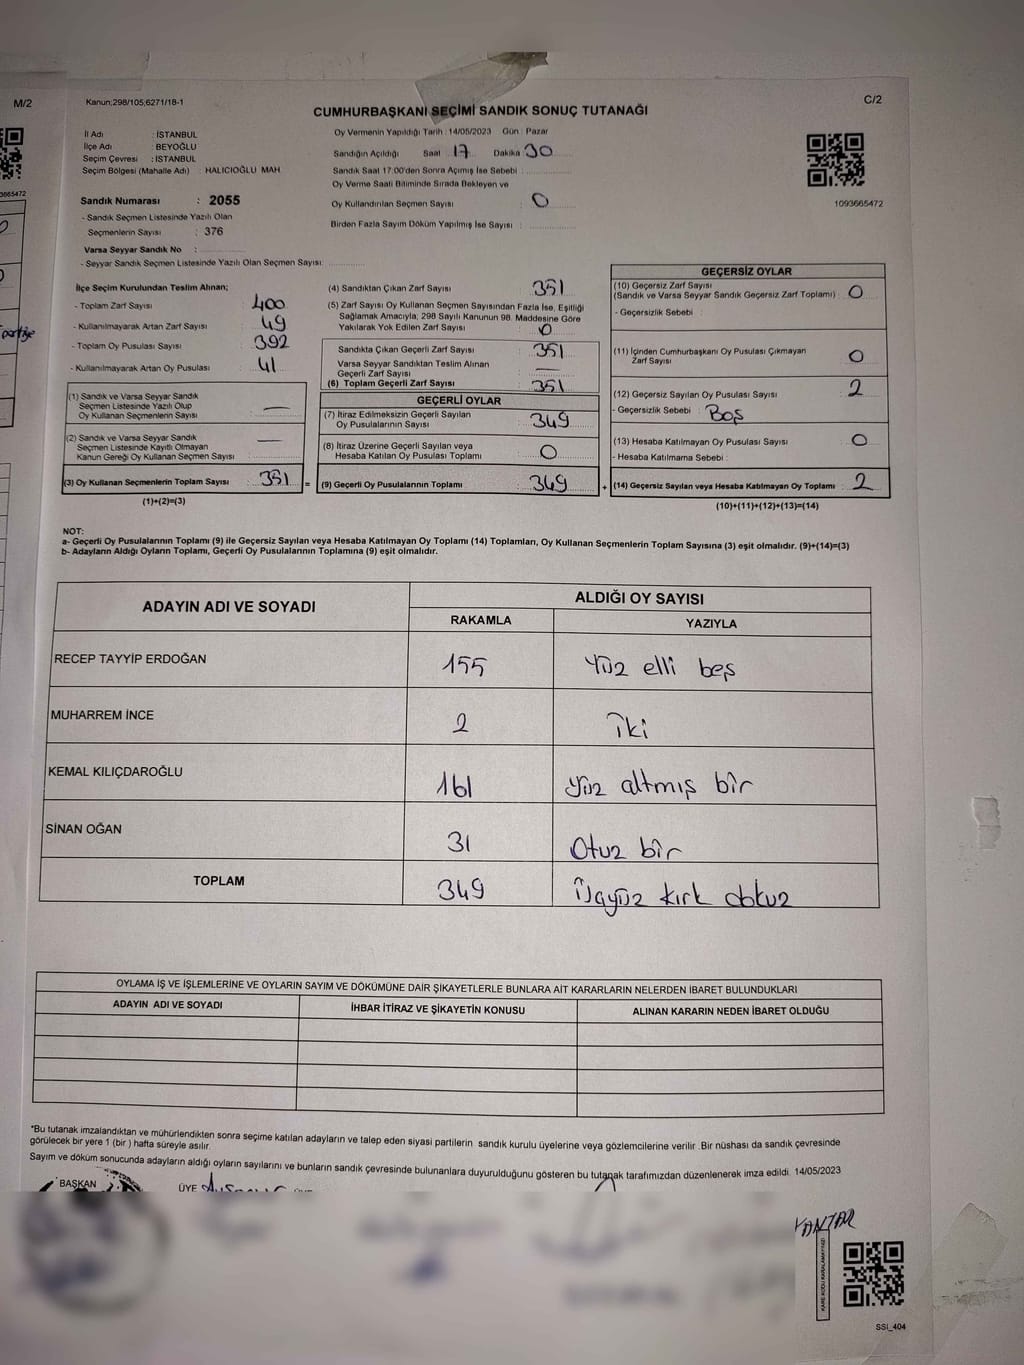 M/2
Kanun;298/105;6271/18-1
C/2
CUMHURBAŞKANI SEÇİMİ SANDIK SONUÇ TUTANAĞI
İl Adı : İSTANBUL
İlçe Adı : BEYOĞLU
Seçim Çevresi : İSTANBUL
Seçim Bölgesi (Mahalle Adı) : HALICIOĞLU MAH
Sandık Numarası : 2055
- Sandık Seçmen Listesinde Yazılı Olan
Seçmenlerin Sayısı : 376
Varsa Seyyar Sandık No :
- Seyyar Sandık Seçmen Listesinde Yazılı Olan Seçmen Sayısı:
Oy Vermenin Yapıldığı Tarih : 14/05/2023 Gün : Pazar
Sandığın Açıldığı Saat 17 Dakika 30
Sandık Saat 17:00'den Sonra Açımış İse Sebebi :
Oy Verme Saati Bitiminde Sırada Bekleyen ve
Oy Kullandırılan Seçmen Sayısı : 0
Birden Fazla Sayım Döküm Yapılmış İse Sayısı :
1093665472
İlçe Seçim Kurulundan Teslim Alınan;
- Toplam Zarf Sayısı : 400
- Kullanılmayarak Artan Zarf Sayısı : 49
- Toplam Oy Pusulası Sayısı : 392
- Kullanılmayarak Artan Oy Pusulası : 41
(1) Sandık ve Varsa Seyyar Sandık
Seçmen Listesinde Yazılı Olup
Oy Kullanan Seçmenlerin Sayısı : —
(2) Sandık ve Varsa Seyyar Sandık
Seçmen Listesinde Kayıtlı Olmayan
Kanun Gereği Oy Kullanan Seçmen Sayısı : —
(3) Oy Kullanan Seçmenlerin Toplam Sayısı : 351 =
(1)+(2)=(3)
(4) Sandıktan Çıkan Zarf Sayısı : 351
(5) Zarf Sayısı Oy Kullanan Seçmen Sayısından Fazla İse, Eşitliği
Sağlamak Amacıyla; 298 Sayılı Kanunun 98. Maddesine Göre
Yakılarak Yok Edilen Zarf Sayısı : 0
Sandıkta Çıkan Geçerli Zarf Sayısı : 351
Varsa Seyyar Sandıktan Teslim Alınan
Geçerli Zarf Sayısı : —
(6) Toplam Geçerli Zarf Sayısı : 351
GEÇERLİ OYLAR
(7) İtiraz Edilmeksizin Geçerli Sayılan
Oy Pusulalarının Sayısı : 349
(8) İtiraz Üzerine Geçerli Sayılan veya
Hesaba Katılan Oy Pusulası Toplamı : 0
(9) Geçerli Oy Pusulalarının Toplamı : 349 +
GEÇERSİZ OYLAR
(10) Geçersiz Zarf Sayısı
(Sandık ve Varsa Seyyar Sandık Geçersiz Zarf Toplamı) : 0
- Geçersizlik Sebebi :
(11) İçinden Cumhurbaşkanı Oy Pusulası Çıkmayan
Zarf Sayısı : 0
(12) Geçersiz Sayılan Oy Pusulası Sayısı : 2
- Geçersizlik Sebebi : Boş
(13) Hesaba Katılmayan Oy Pusulası Sayısı : 0
- Hesaba Katılmama Sebebi :
(14) Geçersiz Sayılan veya Hesaba Katılmayan Oy Toplamı : 2
(10)+(11)+(12)+(13)=(14)
NOT:
a- Geçerli Oy Pusulalarının Toplamı (9) ile Geçersiz Sayılan veya Hesaba Katılmayan Oy Toplamı (14) Toplamları, Oy Kullanan Seçmenlerin Toplam Sayısına (3) eşit olmalıdır. (9)+(14)=(3)
b- Adayların Aldığı Oyların Toplamı, Geçerli Oy Pusulalarının Toplamına (9) eşit olmalıdır.
ADAYIN ADI VE SOYADI
ALDIĞI OY SAYISI
RAKAMLA YAZIYLA
RECEP TAYYİP ERDOĞAN 155 Yüz elli beş
MUHARREM İNCE 2 iki
KEMAL KILIÇDAROĞLU 161 Yüz altmış bir
SİNAN OĞAN 31 Otuz bir
TOPLAM 349 Üçyüz kırk dokuz
OYLAMA İŞ VE İŞLEMLERİNE VE OYLARIN SAYIM VE DÖKÜMÜNE DAİR ŞİKAYETLERLE BUNLARA AİT KARARLARIN NELERDEN İBARET BULUNDUKLARI
ADAYIN ADI VE SOYADI İHBAR İTİRAZ VE ŞİKAYETİN KONUSU ALINAN KARARIN NEDEN İBARET OLDUĞU
*Bu tutanak imzalandıktan ve mühürlendikten sonra seçime katılan adayların ve talep eden siyasi partilerin sandık kurulu üyelerine veya gözlemcilerine verilir .Bir nüshası da sandık çevresinde
görülecek bir yere 1 (bir ) hafta süreyle asılır.
Sayım ve döküm sonucunda adayların aldığı oyların sayılarını ve bunların sandık çevresinde bulunanlara duyurulduğunu gösteren bu tutanak tarafımızdan düzenlenerek imza edildi. 14/05/2023
BAŞKAN ÜYE
KANTAR
KARE KODU KARALAMAYINIZ!
SSI_404